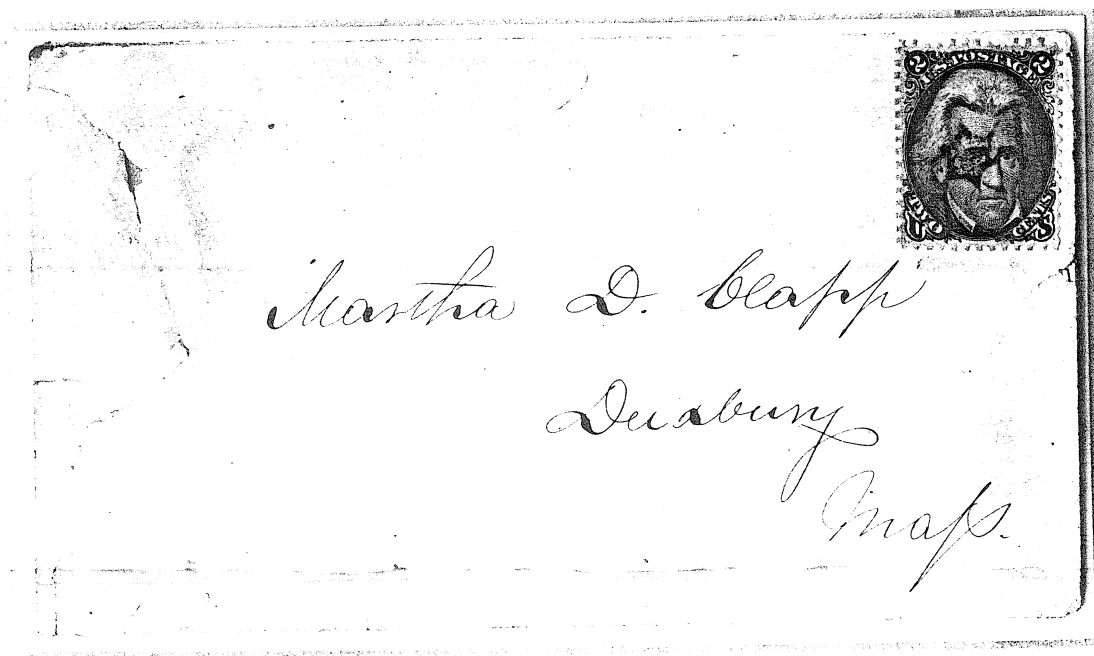 2 U.S. POSTAGE 2
TWO CENTS
Martha D. Clapp
Duxbury
Mass.